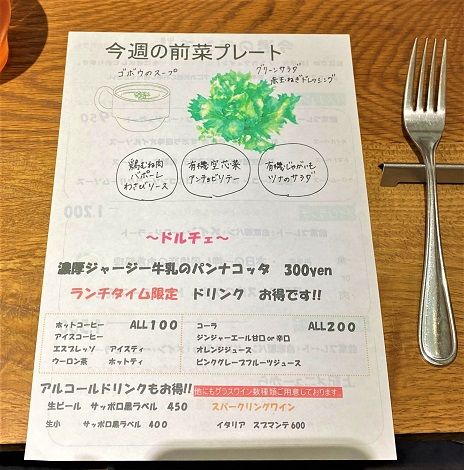 今週の前菜プレート
ゴボウのスープ
グリーンサラダ
赤玉ねぎドレッシング
鶏むね肉
バポーレ
わさびソース
有機空芯菜
アンチョビソテー
有機じゃがいも
ツナのサラダ
〜ドルチェ〜
濃厚ジャージー牛乳のパンナコッタ 300yen
ランチタイム限定 ドリンク お得です!!
ホットコーヒー ALL100
アイスコーヒー
エスプレッソ アイスティ
ウーロン茶 ホットティ
コーラ ALL200
ジンジャーエール甘口or辛口
オレンジジュース
ピンクグレープフルーツジュース
アルコールドリンクもお得!! 他にもグラスワイン数種類ご用意しております
生ビール サッポロ黒ラベル 450 スパークリングワイン
生小 サッポロ黒ラベル 400 イタリア スプマンテ600